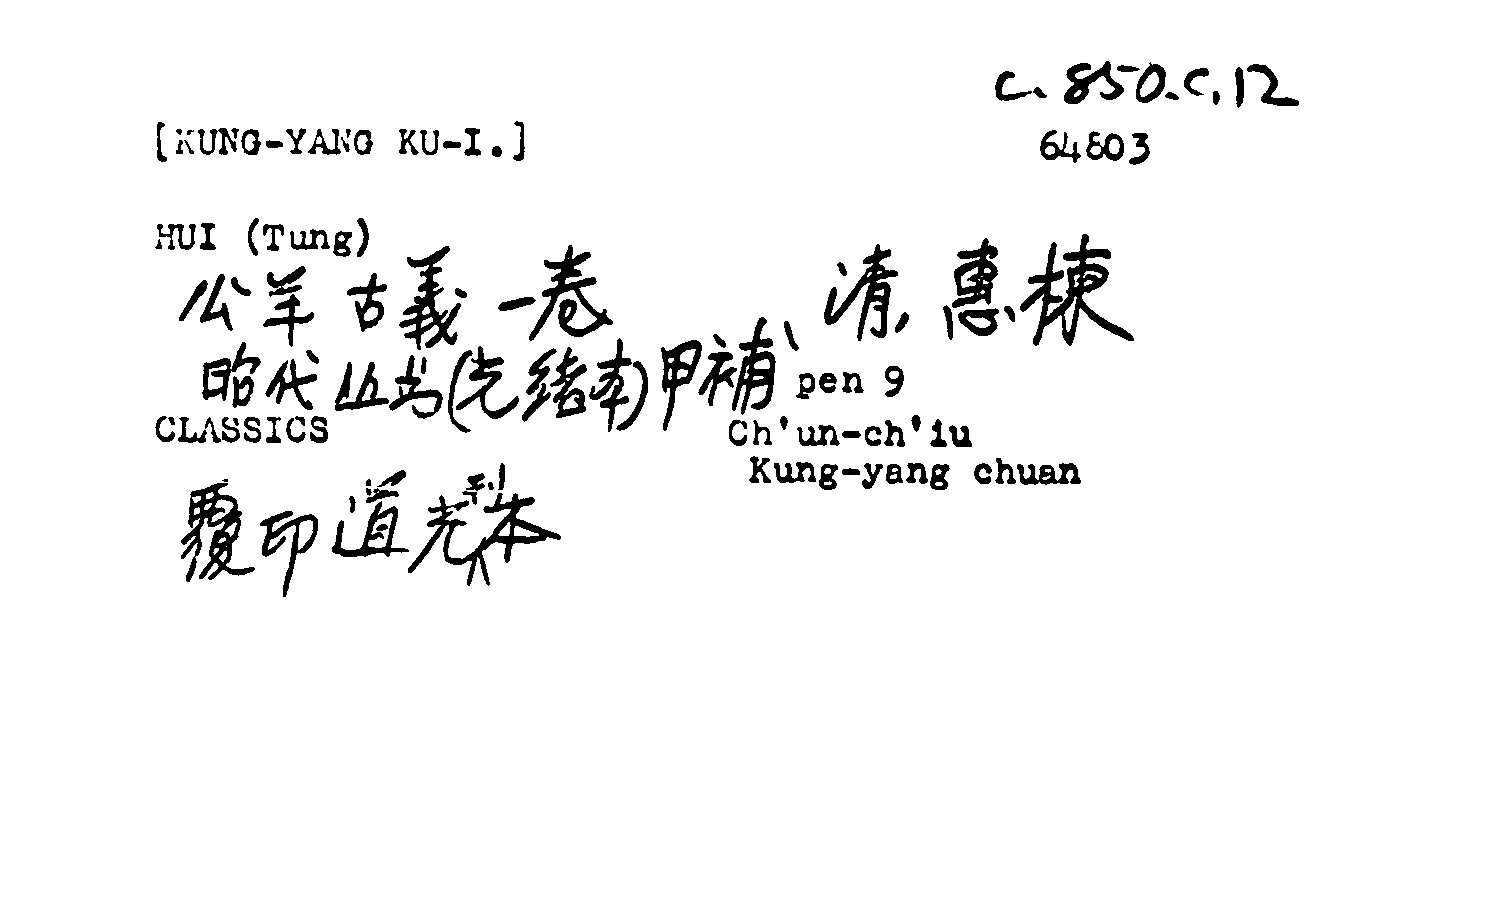 C.850.C.12
[KUNG-YANG KU-I.]
64803
HUI (Tung)
公羊古義一卷 清, 惠棟
昭代丛书(光緒本)甲補、pen 9
CLASSICS Ch'un-ch'iu
Kung-yang chuan
覆印道光刊本